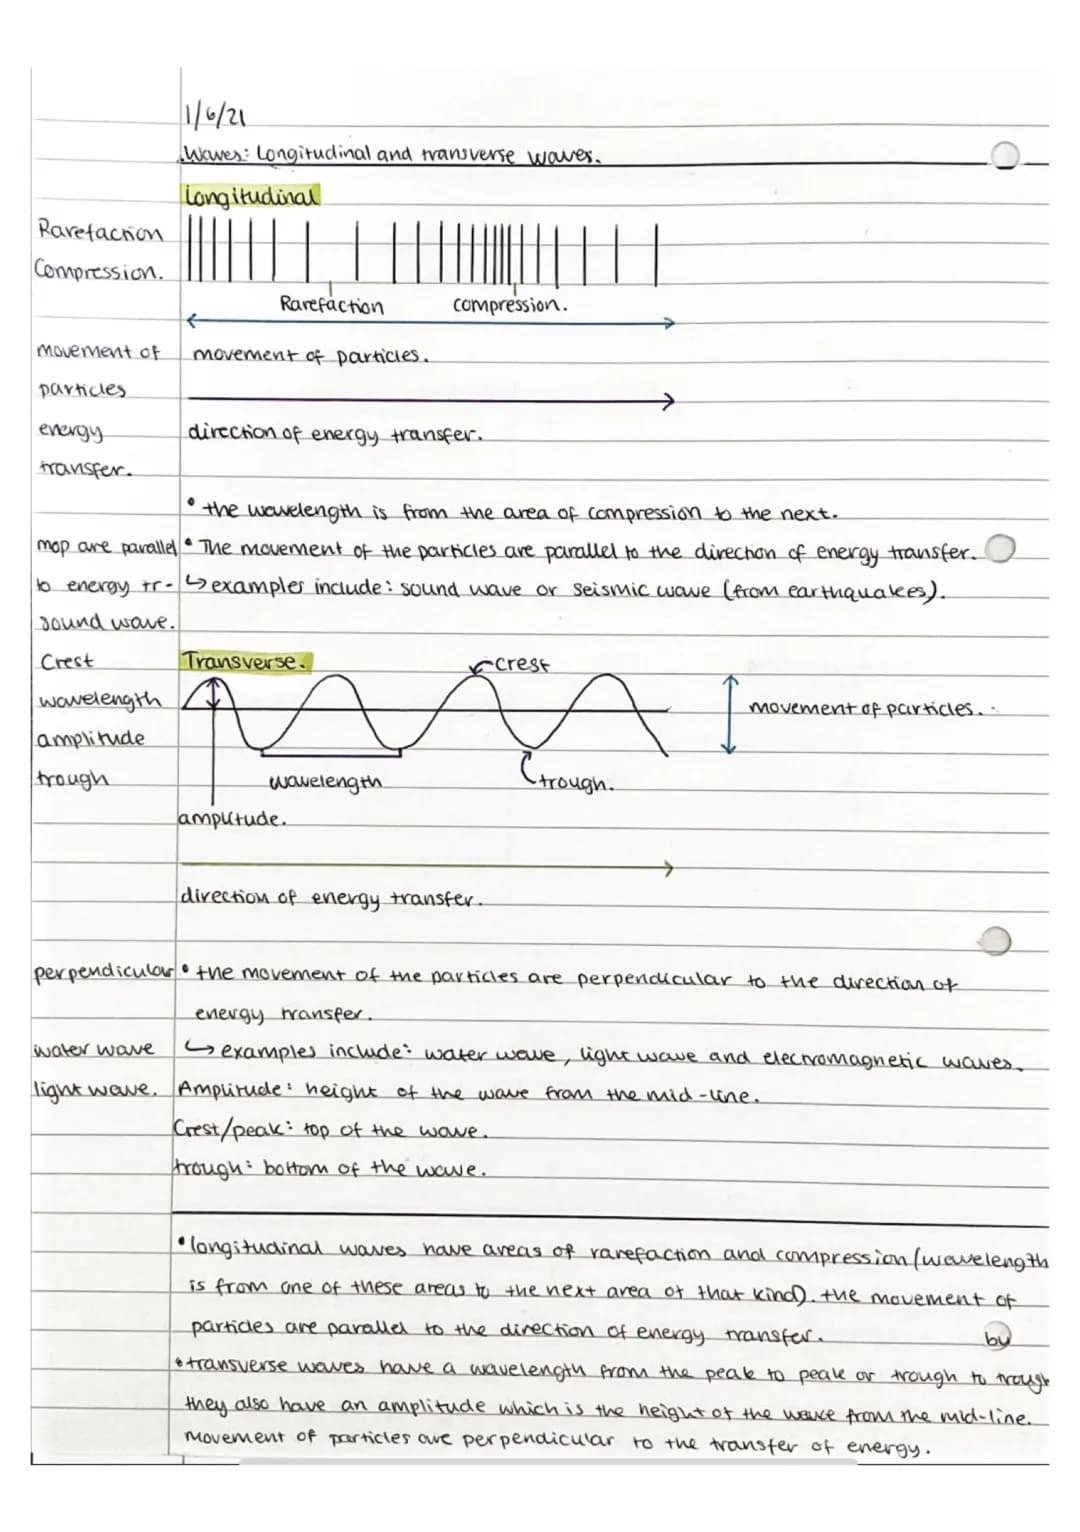 1/6/21
Waves: Longitudinal and transverse waves.
Longitudinal
Rarefaction
Compression.
Rarefaction compression.
movement of movement of particles.
particles
energy direction of energy transfer.
transfer.
• the wavelength is from the area of compression to the next.
mop are parallel • The movement of the particles are parallel to the direction of energy transfer.
to energy tr- ↳ examples include: sound wave or seismic wave (from earthquakes).
sound wave.
Crest Transverse. crest
wavelength movement of particles.
amplitude
trough wavelength trough.
amplitude.
direction of energy transfer.
perpendicular • the movement of the particles are perpendicular to the direction of
energy transfer.
water wave ↳ examples include: water wave, light wave and electromagnetic waves.
light wave. Amplitude: height of the wave from the mid-line.
Crest/peak: top of the wave.
trough: bottom of the wave.
• longitudinal waves have areas of rarefaction and compression (wavelength
is from one of these areas to the next area of that kind). the movement of
particles are parallel to the direction of energy transfer. by
• transverse waves have a wavelength from the peak to peak or trough to trough
they also have an amplitude which is the height of the wave from the mid-line.
movement of particles are perpendicular to the transfer of energy.